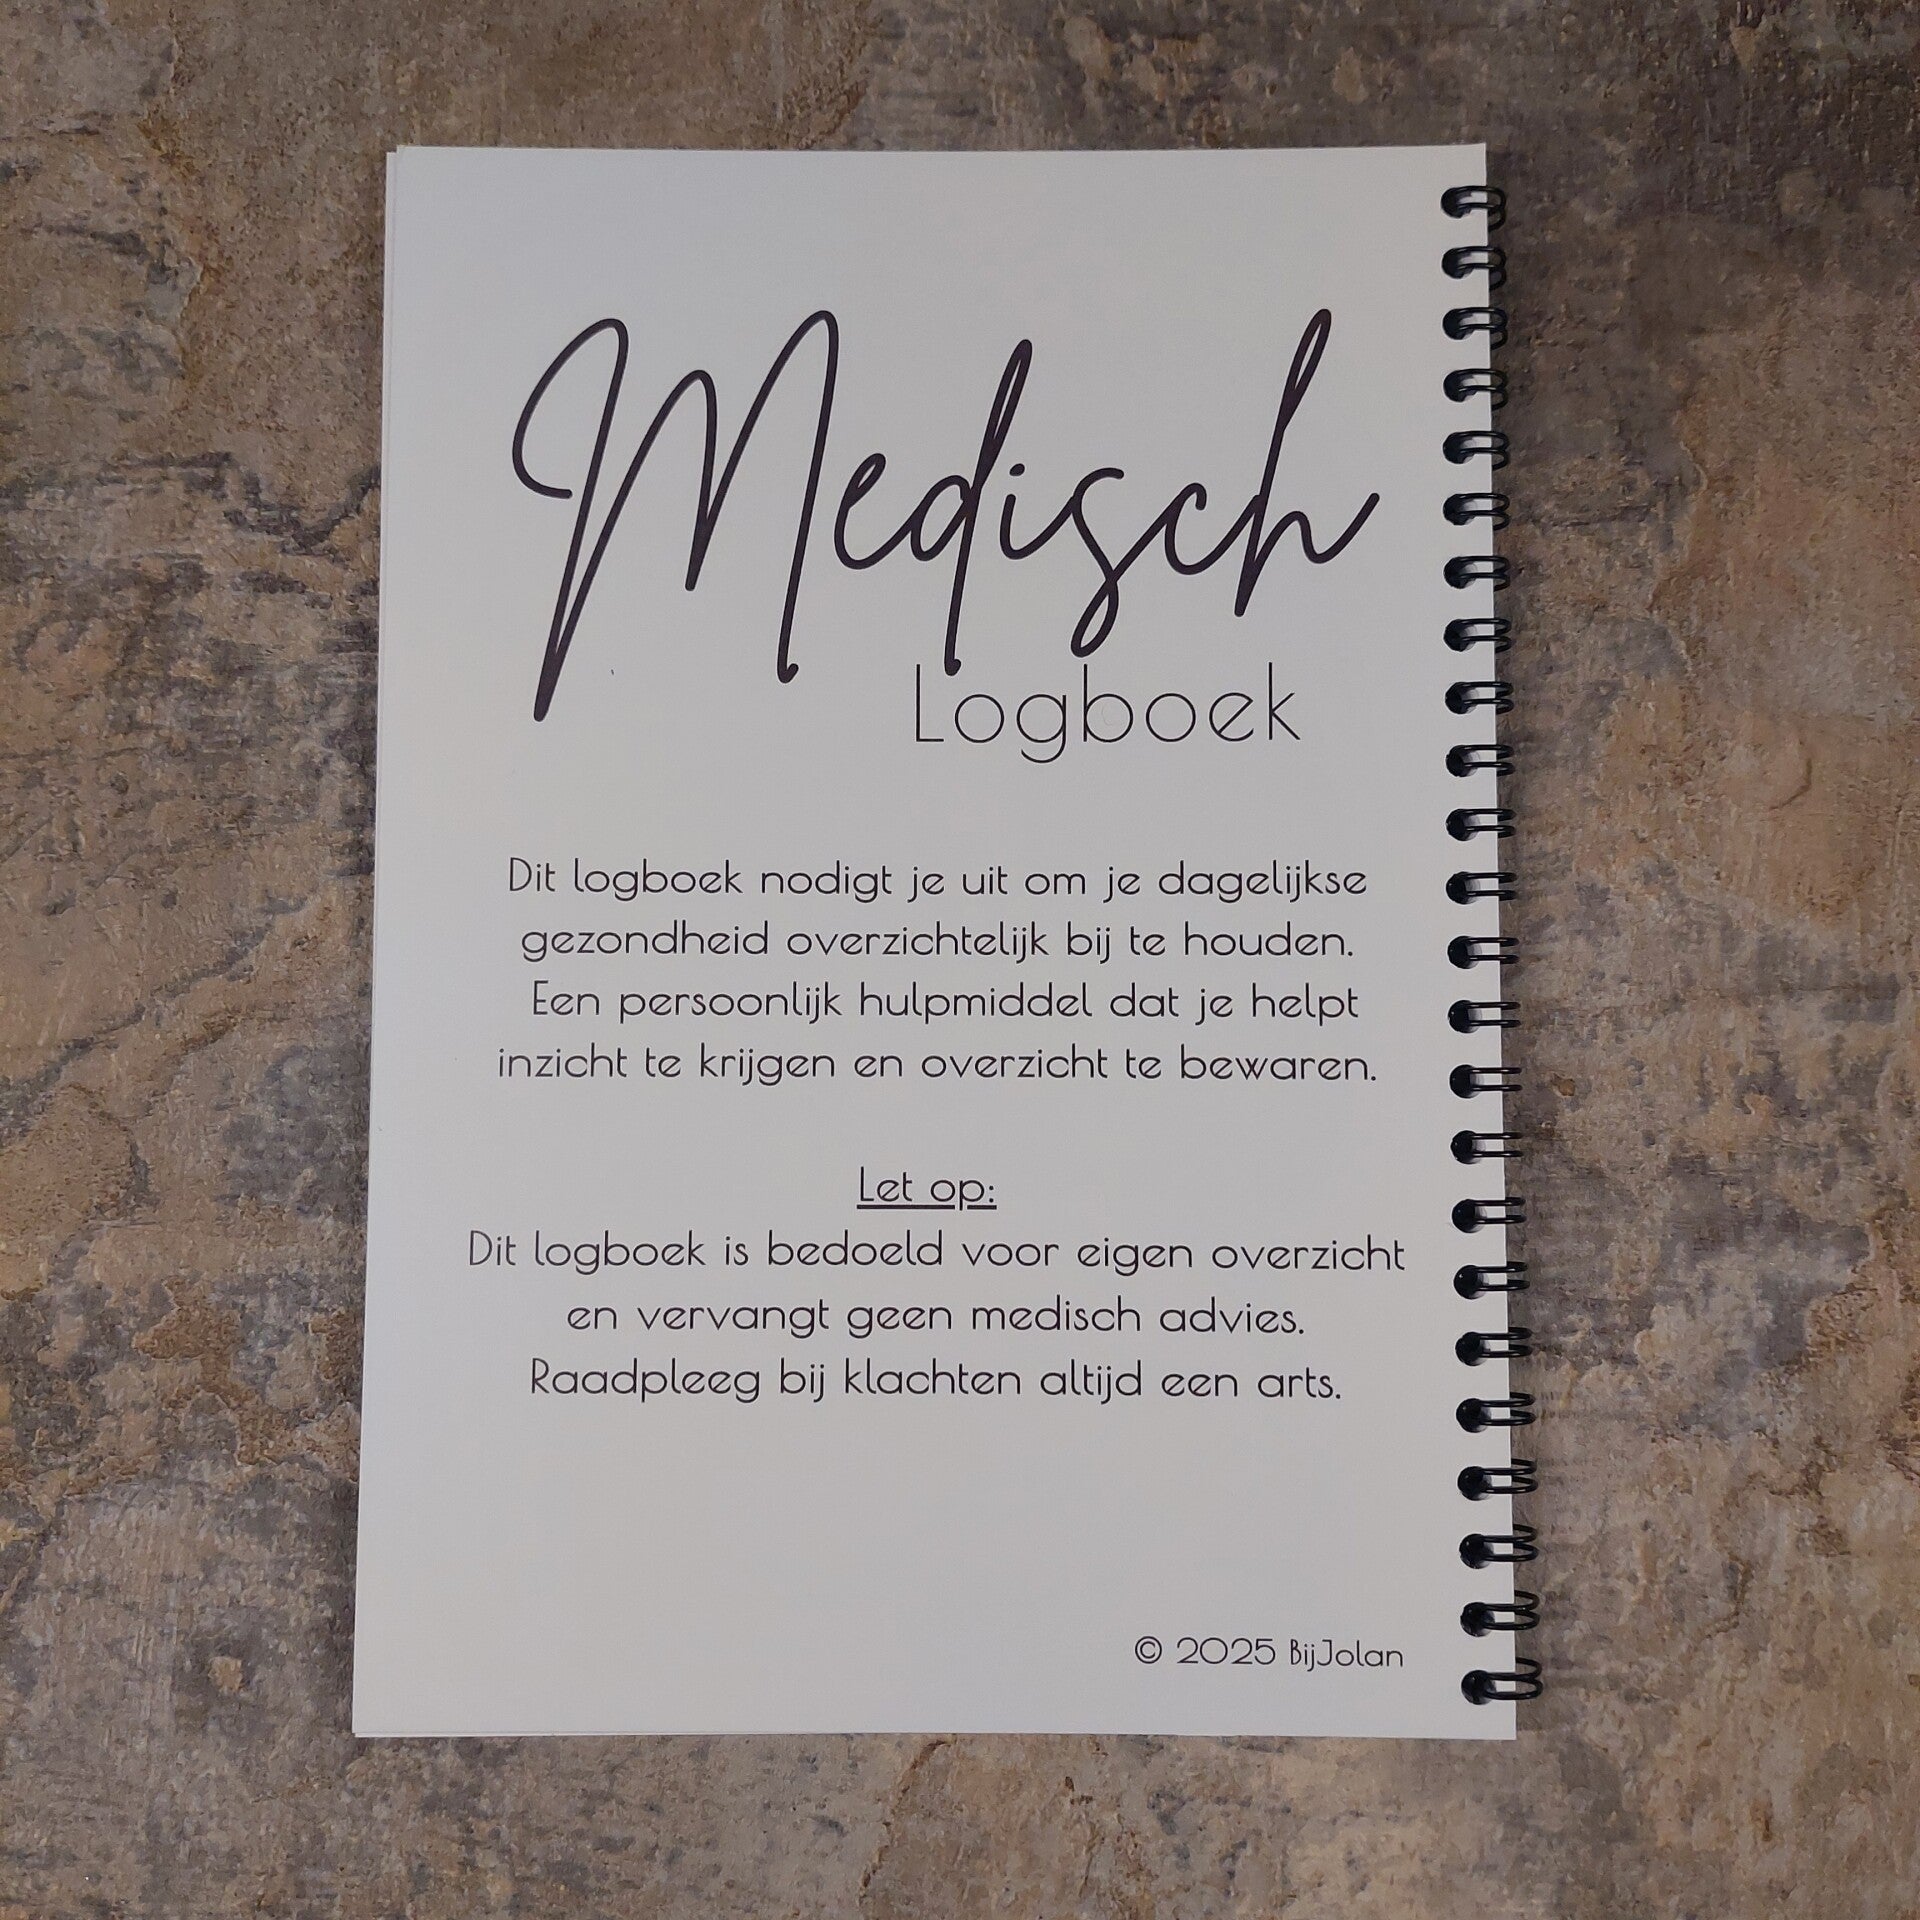 Medisch
Logboek
Dit logboek nodigt je uit om je dagelijkse
gezondheid overzichtelijk bij te houden.
Een persoonlijk hulpmiddel dat je helpt
inzicht te krijgen en overzicht te bewaren.
Let op:
Dit logboek is bedoeld voor eigen overzicht
en vervangt geen medisch advies.
Raadpleeg bij klachten altijd een arts.
© 2025 BijJolan